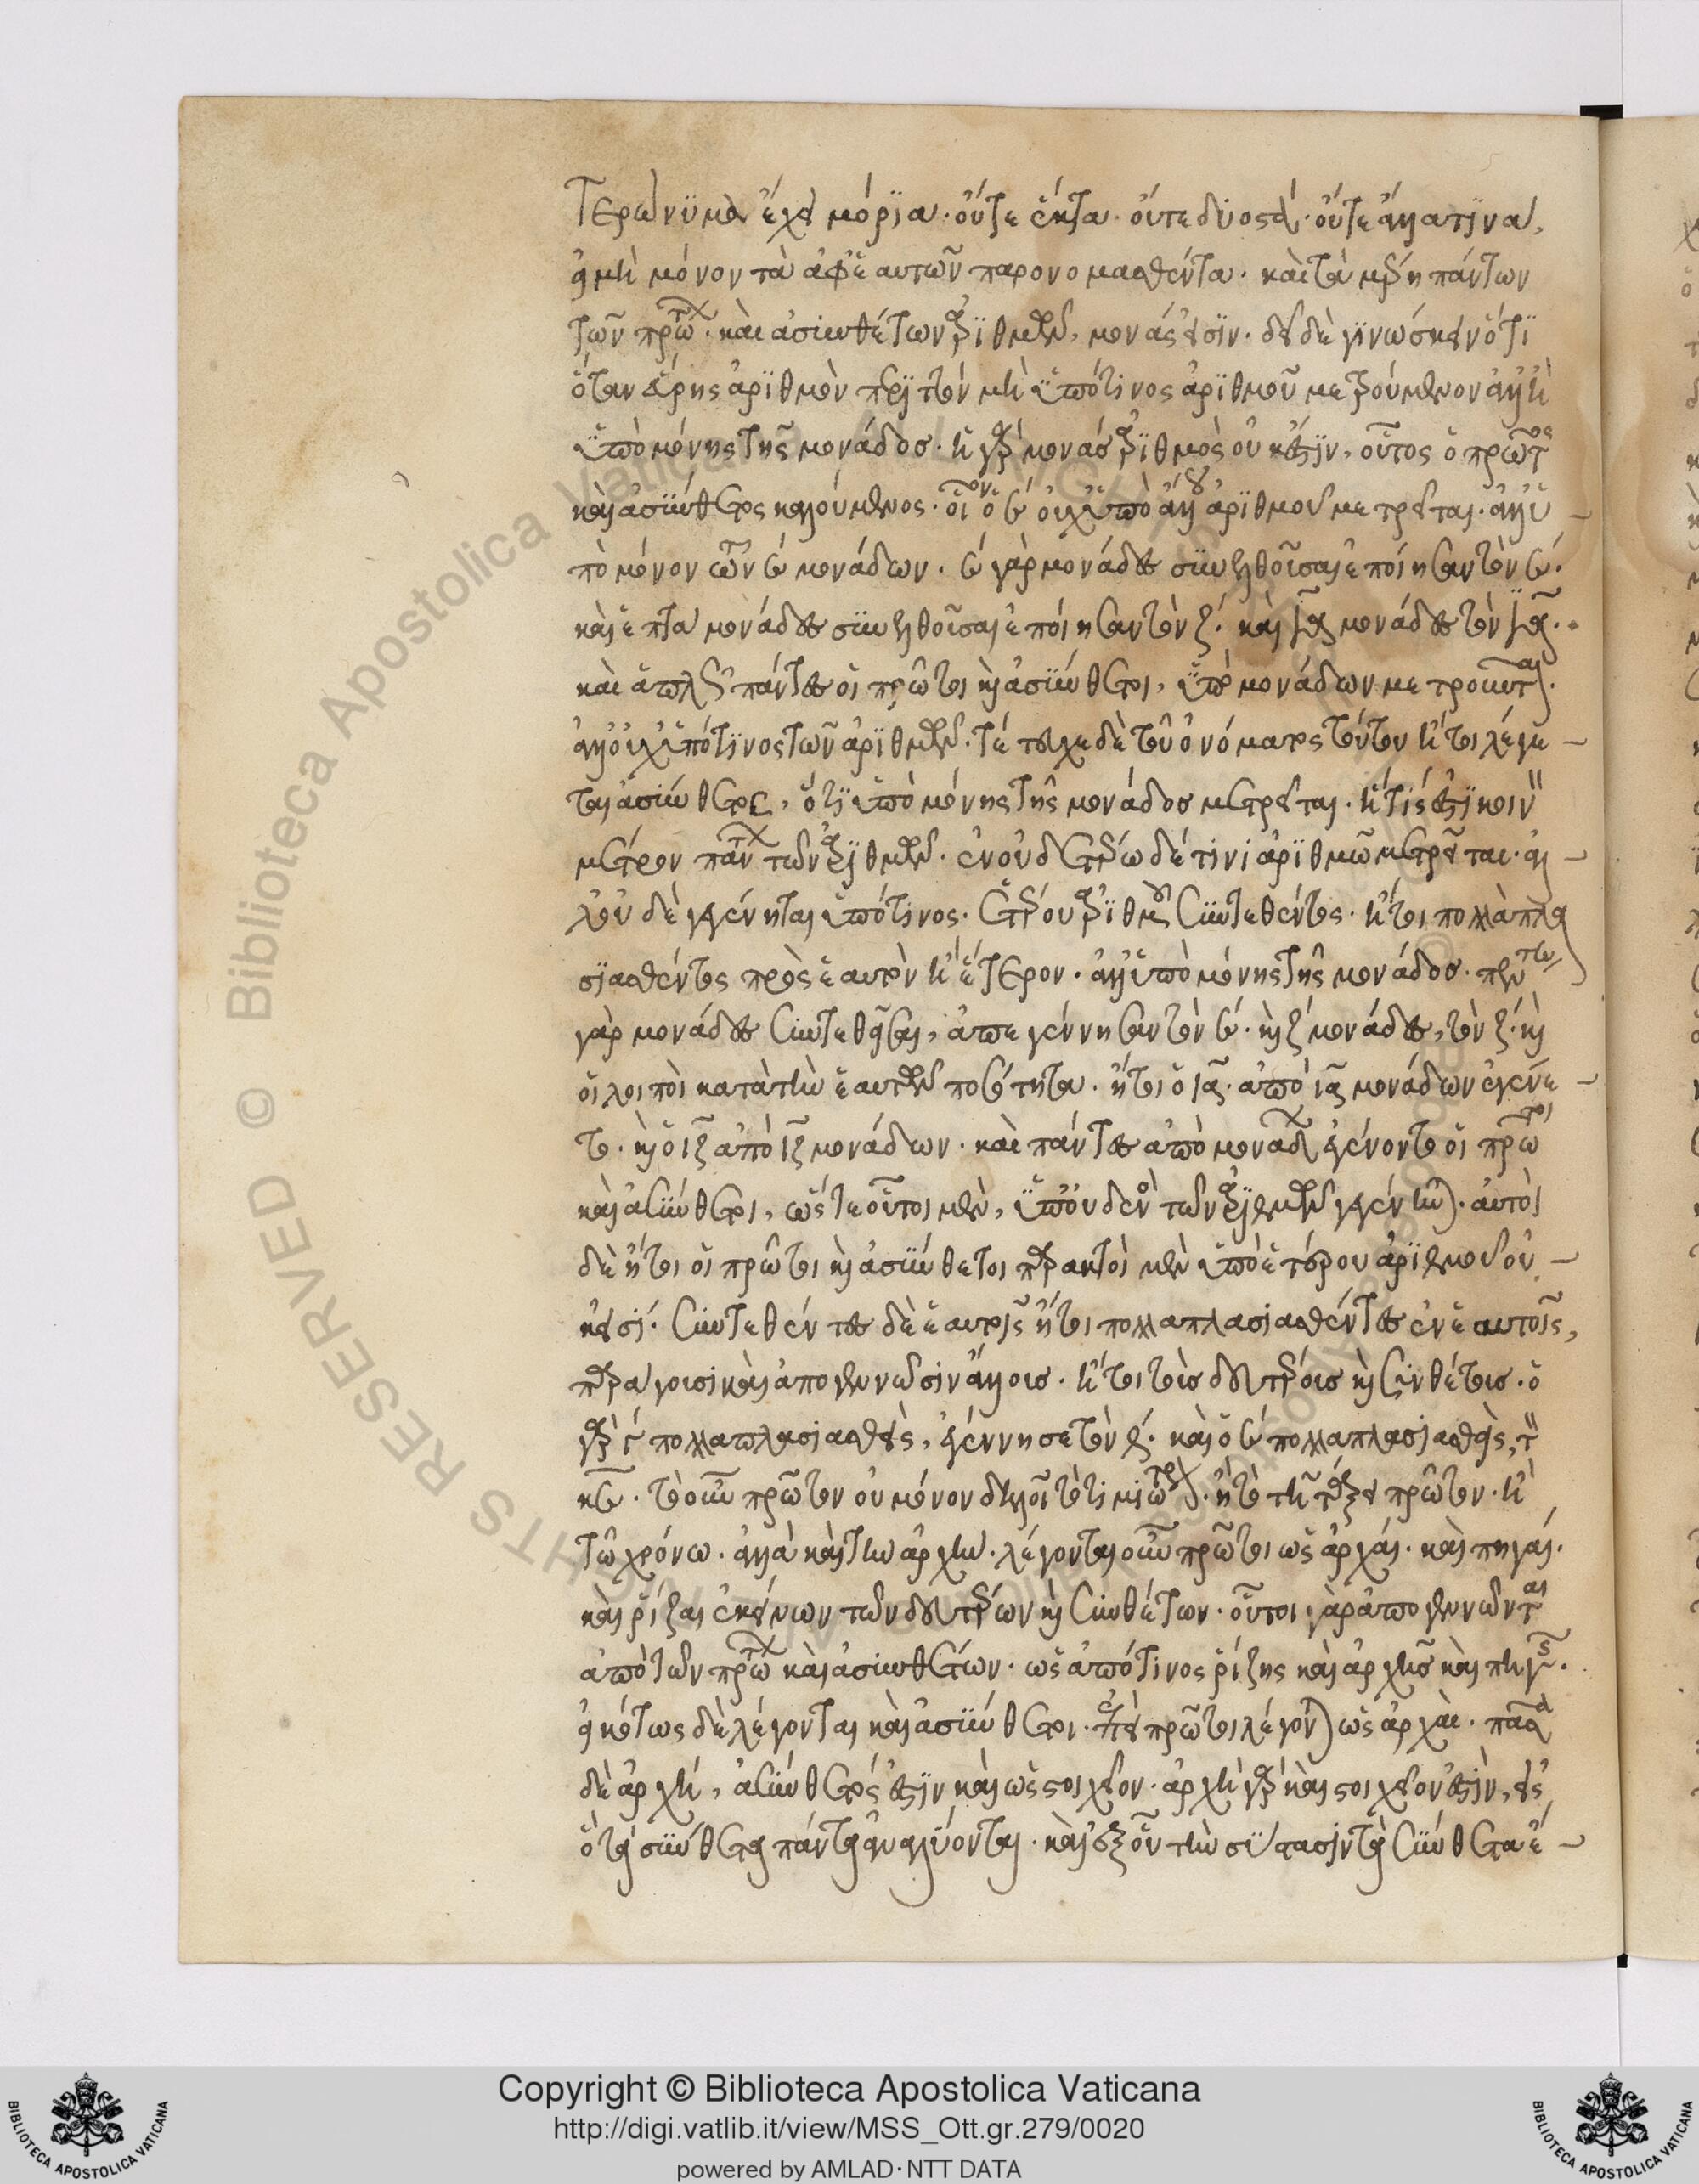 τερώνυμα ἔχει μόρια· οὔτε ἕκτα· οὔτε δυοστά· οὔτε ἄλλα τινα,
εἰ μὴ μόνον τὰ ἀφ' ἑαυτῶν παρονομασθέντα· καὶ τὰ μέρη πάντων
τῶν πρώτων· καὶ ἀσυνθέτων ἀριθμῶν, μονάς εἰσιν· δεῖ δὲ γινώσκειν ὅτι
ὅταν εὕρης ἀριθμὸν περιττόν μὴ ὑπό τινος ἀριθμοῦ μετρούμενον ἀλλ' ἢ
ὑπὸ μόνης τῆς μονάδος· ἡ γὰρ μονάς ἀριθμὸς οὐκ ἔστιν, οὗτος ὁ πρῶτος
καὶ ἀσύνθετος καλούμενος· οἷον ὁ ε οὐχ ὑπὸ ἄλλου ἀριθμοῦ μετρεῖται· ἀλλ' ὑ
πὸ μόνον τῶν ε μονάδων· ε γὰρ μονάδες συνελθοῦσαι ἐποίησαν τὸν ε·
καὶ ἑπτα μονάδες συνελθοῦσαι ἐποίησαν τὸν ζ· καὶ ια μονάδες τὸν ια·
καὶ ἁπλῶς πάντες οἱ πρῶτοι καὶ ἀσύνθετοι, ὑπὸ μονάδων μετροῦνται·
ἀλλ' οὐχ ὑπό τινος τῶν ἀριθμῶν· τέτυχε δὲ τοῦ ὀνόματος τούτου ἤτοι λέγε
ται ἀσύνθετος, ὅτι ὑπὸ μόνης τῆς μονάδος μετρεῖται· ἥτις ἐστι κοινὸν
μέτρον πάντων τῶν ἀριθμῶν· ἐν οὐδετέρω δέ τινι ἀριθμῶ μετρεῖται· ἀλ
λ' οὐδὲ γεγένηται ὑπό τινος· ἑτέρου ἀριθμοῦ συντεθέντος· ἤτοι πολλαπλα
σιασθέντος πρὸς ἑαυτὸν ἢ ἕτερον· ἀλλ' ὑπὸ μόνης τῆς μονάδος· πέντε
γὰρ μονάδες συντεθεῖσαι, ἀπεγέννησαν τὸν ε· καὶ ζ μονάδες, τὸν ζ· καὶ
οἱ λοιποὶ κατὰ τὴν ἑαυτῶν ποσότητα· ἤτοι ὁ ια· ἀπὸ ια μονάδων ἐγένε
το· καὶ ὁ ιζ ἀπὸ ιζ μονάδων· καὶ πάντες ἀπὸ μονάδων ἐγένοντο οἱ πρῶτοι
καὶ ἀσύνθετοι, ὥστε οὗτοι μὲν, ὑπ' οὐδενὸς τῶν ἀριθμῶν γεγένηνται· αὐτοὶ
δὲ ἤτοι οἱ πρῶτοι καὶ ἀσύνθετοι παρακτοὶ μὲν ὑπὸ ἑτέρου ἀριθμοῦ οὐ
κ εἰσί· συντεθέντες δὲ ἑαυτοῖς ἤτοι πολλαπλασιασθέντες ἐν ἑαυτοῖς,
παράγουσι καὶ ἀπογεννῶσιν ἄλλους· ἤτοι τοὺς δευτέρους καὶ συνθέτους· ὁ
γὰρ γ πολλαπλασιασθεὶς, ἐγέννησε τὸν θ· καὶ ὁ ε πολλαπλασιασθεὶς, τὸν
κε· τὸ οὖν πρῶτον οὐ μόνον δηλοῖ τὸ τιμιώτερον· ἢ τὸ τῆ τάξει πρῶτον· ἢ
τῶ χρόνω· ἀλλὰ καὶ τὴν ἀρχήν· λέγονται οὖν πρῶτοι ὡς ἀρχαί· καὶ πηγαί·
καὶ ῥίζαι ἐκείνων τῶν δευτέρων καὶ συνθέτων· οὗτοι γὰρ ἀπογεννῶνται
ἀπὸ τῶν πρώτων καὶ ἀσυνθέτων· ὡς ἀπό τινος ῥίζης καὶ ἀρχῆς καὶ πηγῆς·
εἰκότως δὲ λέγονται καὶ ἀσύνθετοι· ἐπεὶ πρῶτοι λέγονται ὡς ἀρχαὶ· πᾶσα
δὲ ἀρχή, ἀσύνθετός ἐστιν καὶ ὡς στοιχεῖον· ἀρχὴ γὰρ καὶ στοιχεῖον ἐστὶν, εἰς
ὃ τὰ σύνθετα πάντα ἀναλύονται· καὶ ἐξ οὗ τὴν σύστασιν τὰ σύνθετα ἔ
Copyright © Biblioteca Apostolica Vaticana
http://digi.vatlib.it/view/MSS_Ott.gr.279/0020
powered by AMLAD·NTT DATA
BIBLIOTECA APOSTOLICA VATICANA
BIBLIOTECA APOSTOLICA VATICANA